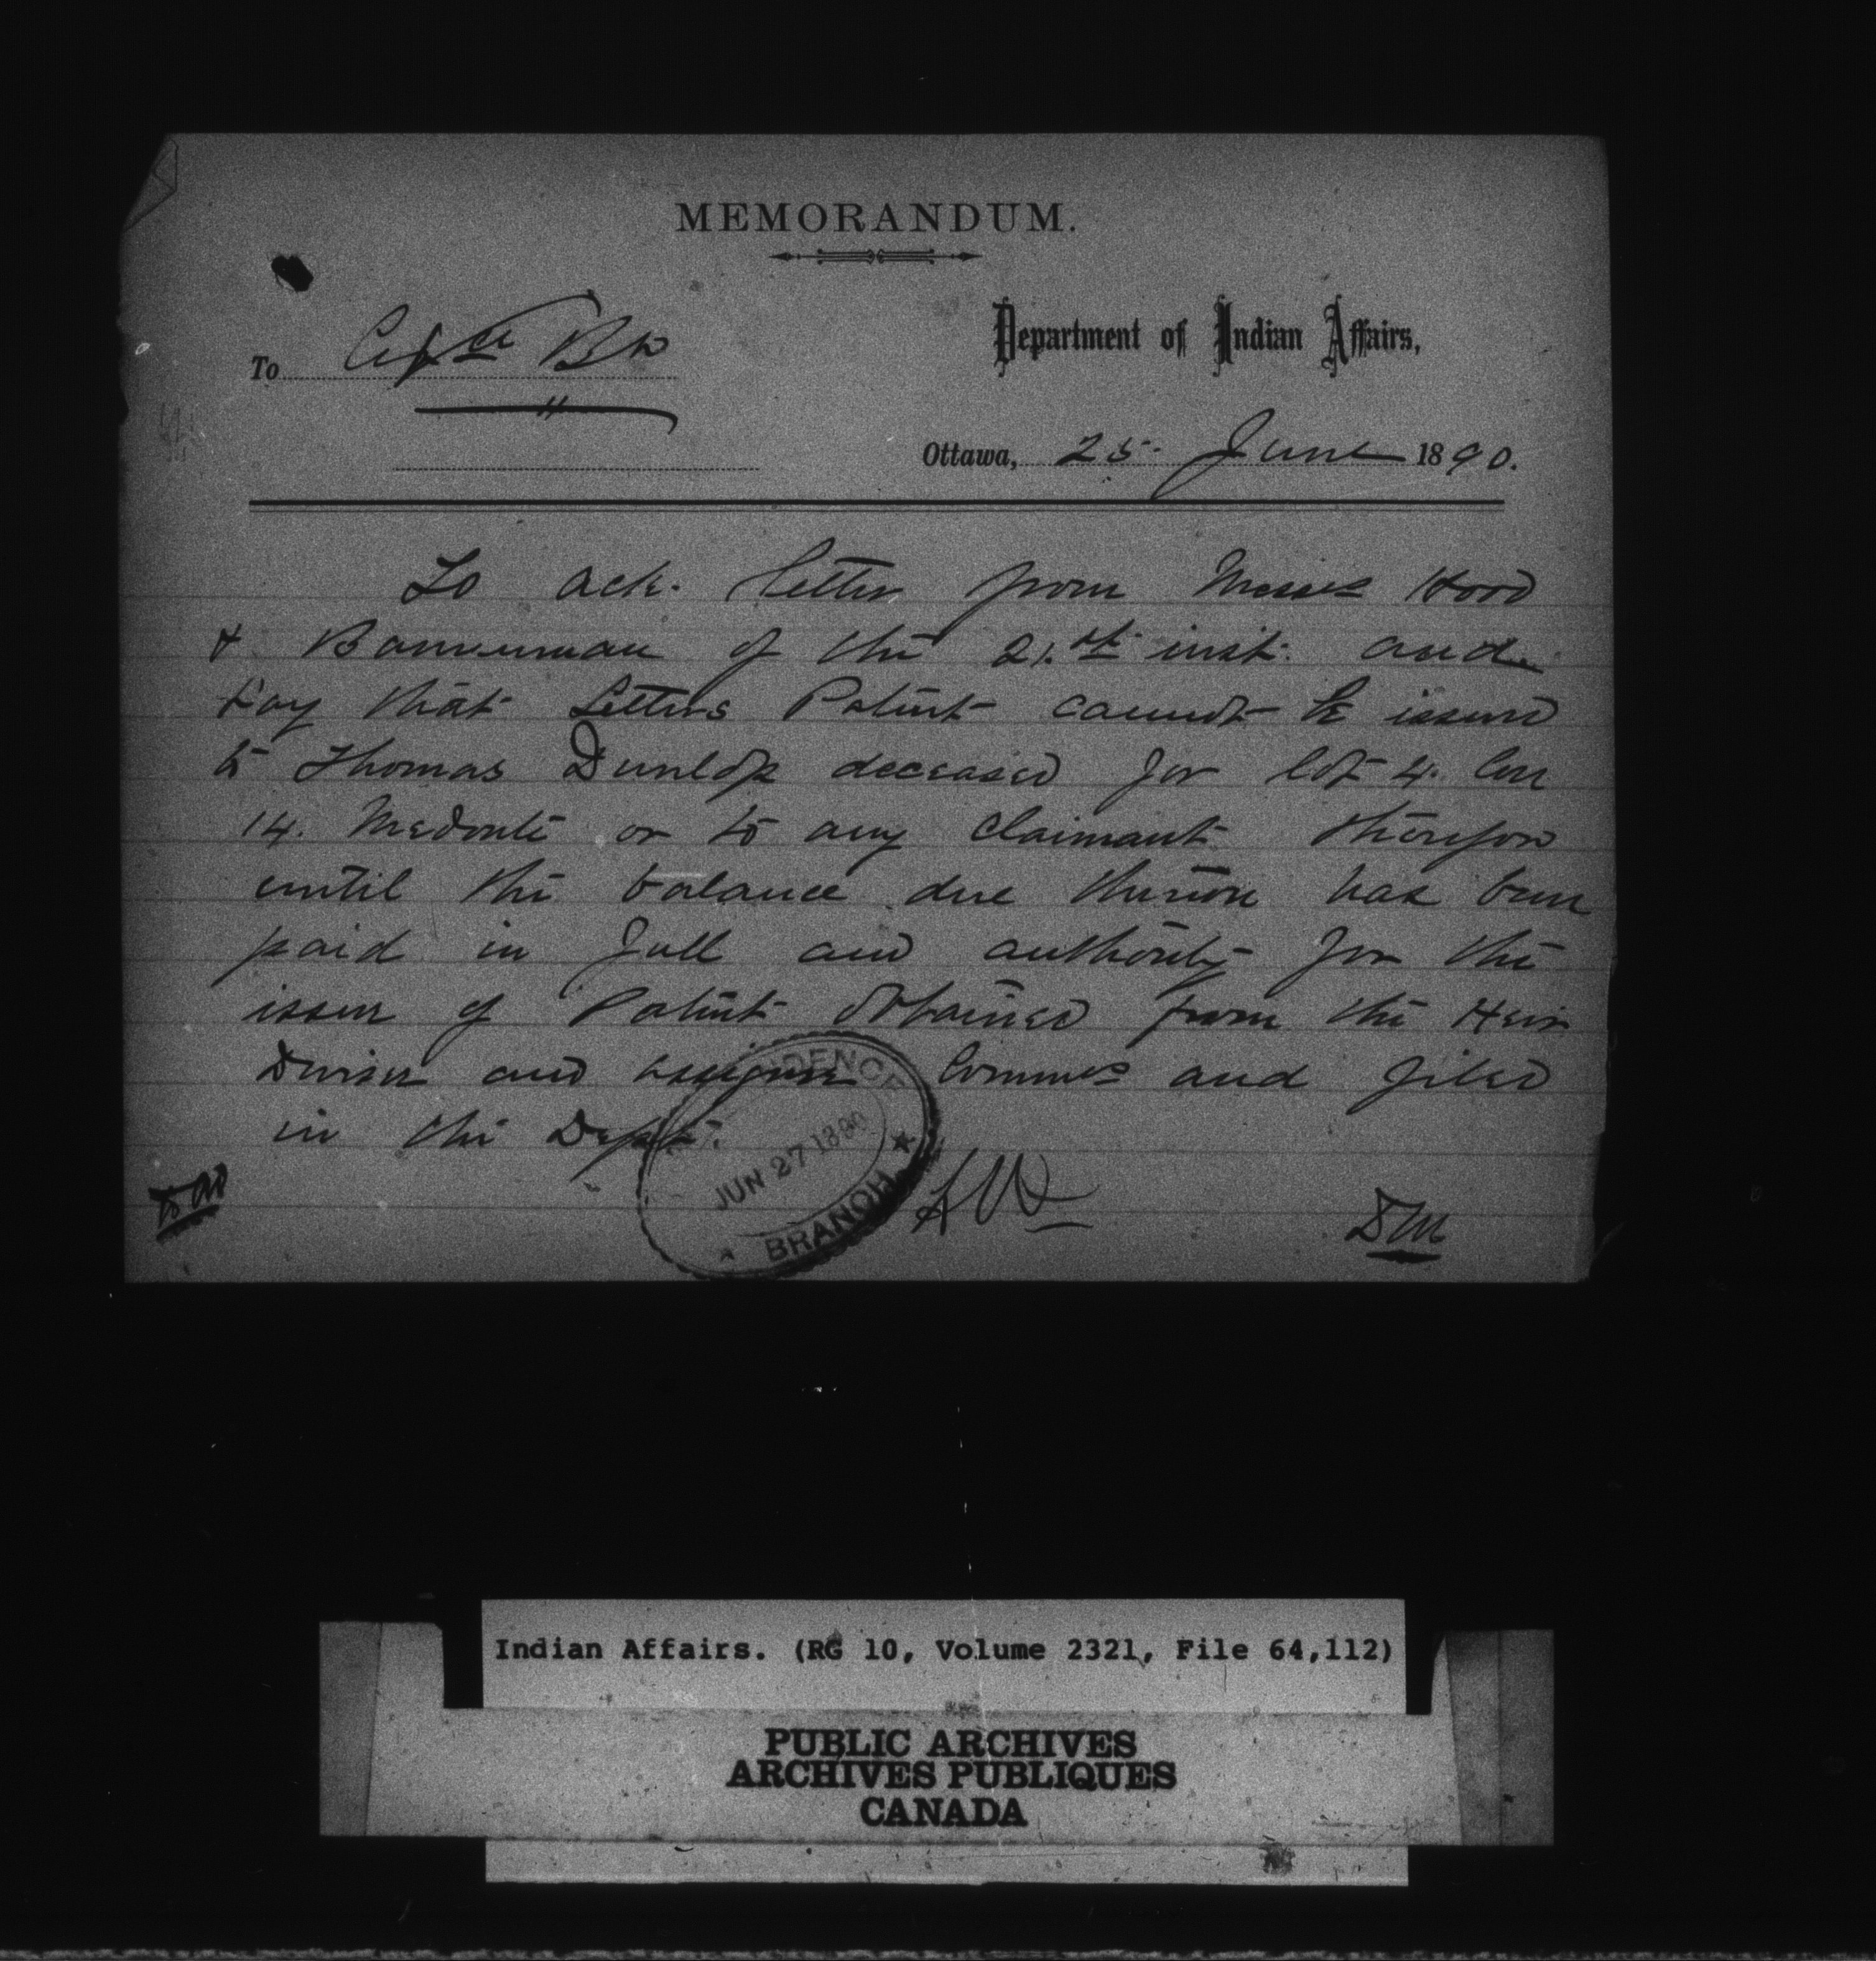 MEMORANDUM.
To Brh
Department of Indian Affairs,
Ottawa, 25. June 1890.
To ack. letter from Messrs Hood
& Bannerman of the 21.st inst. and
say that Letters Patent cannot be issued
to Thomas Dunlop deceased for lot 4. Con
14. Medonte or to any claimant therefor
until the balance due thereon has been
paid in full and authority for the
issue of Patent obtained from the Heir
Devisee and assignee Commrs and filed
in the Dept.
JUN 27 1890
BRANCH
Indian Affairs. (RG 10, Volume 2321, File 64,112)
PUBLIC ARCHIVES
ARCHIVES PUBLIQUES
CANADA